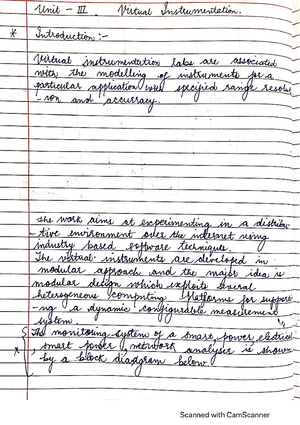 Unit - III Virtual Instrumentation.
* Introduction :-
Virtual instrumentation labs are associated
with the modelling of instruments for a
particular application with specified range resolu
- tion and accuracy.
The work aims at experimenting in a distribu
- tive environment over the internet using
industry based software technique.
The virtual instruments are developed in
modular approach and the major idea is
modular design which exploits several
heterogenous computing platforms for support
- ng a dynamic configurable measurement
system.
* The monitoring system of a smart power electrical
smart power network analyser is shown
by a block diadgram below.
Scanned with CamScanner